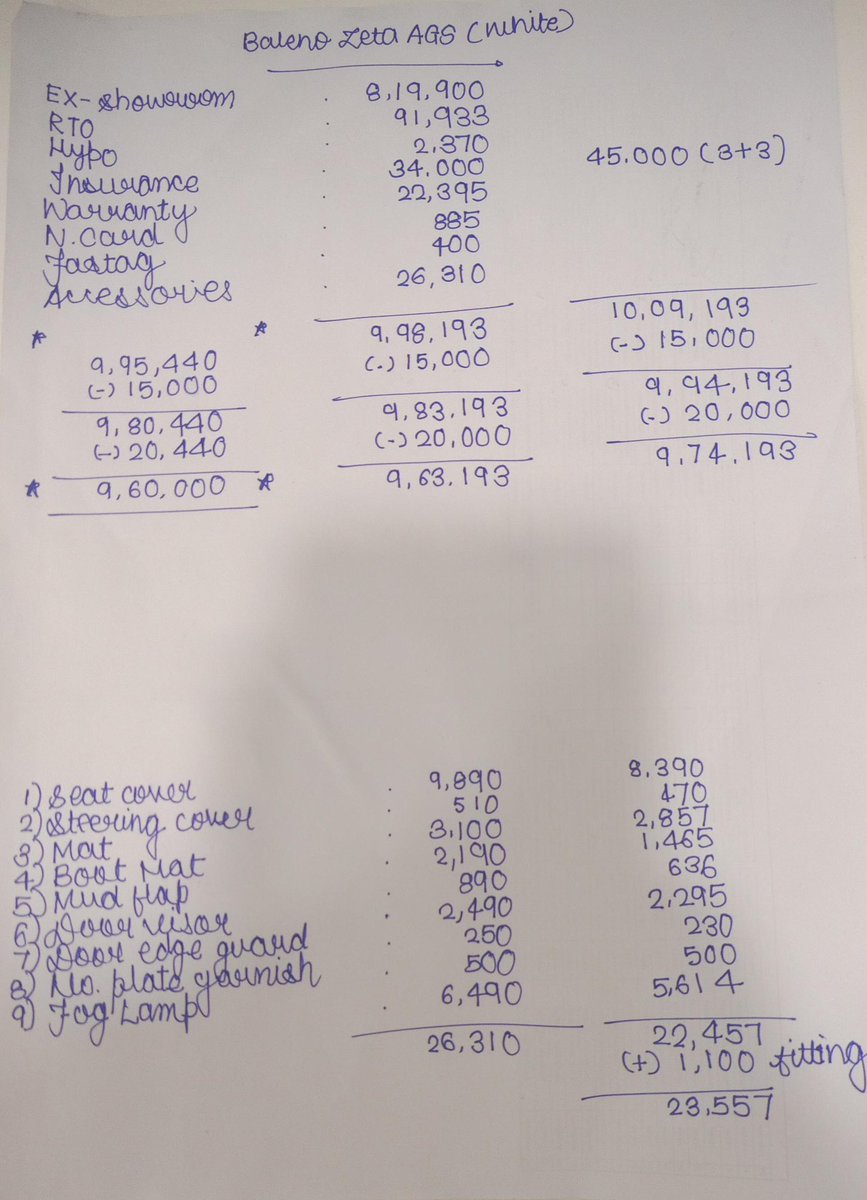 Baleno Zeta AGS (white)
Ex-showroom . 8,19,900
RTO . 91,933
Hypo . 2,370
Insurance . 34.000 45.000 (3+3)
Warranty . 22,395
N.Card . 885
Fastag . 400
Accessories . 26,310
* * 9,98,193 10,09,193
9,95,440 (-) 15,000 (-) 15,000
(-) 15,000
9,80,440 9,83,193 9,94,193
(-) 20,440 (-) 20,000 (-) 20,000
* 9,60,000 * 9,63.193 9,74,193
1) Seat cover . 9,890 8,390
2) Steering cover . 510 470
3) Mat . 3,100 2,857
4) Boot Mat . 2,190 1,465
5) Mud flap . 890 636
6) Door visor . 2,490 2,295
7) Door edge guard . 250 230
8) No. plate garnish . 500 500
9) Fog Lamp . 6,490 5,614
26,310 22,457
(+) 1,100 fitting
23,557